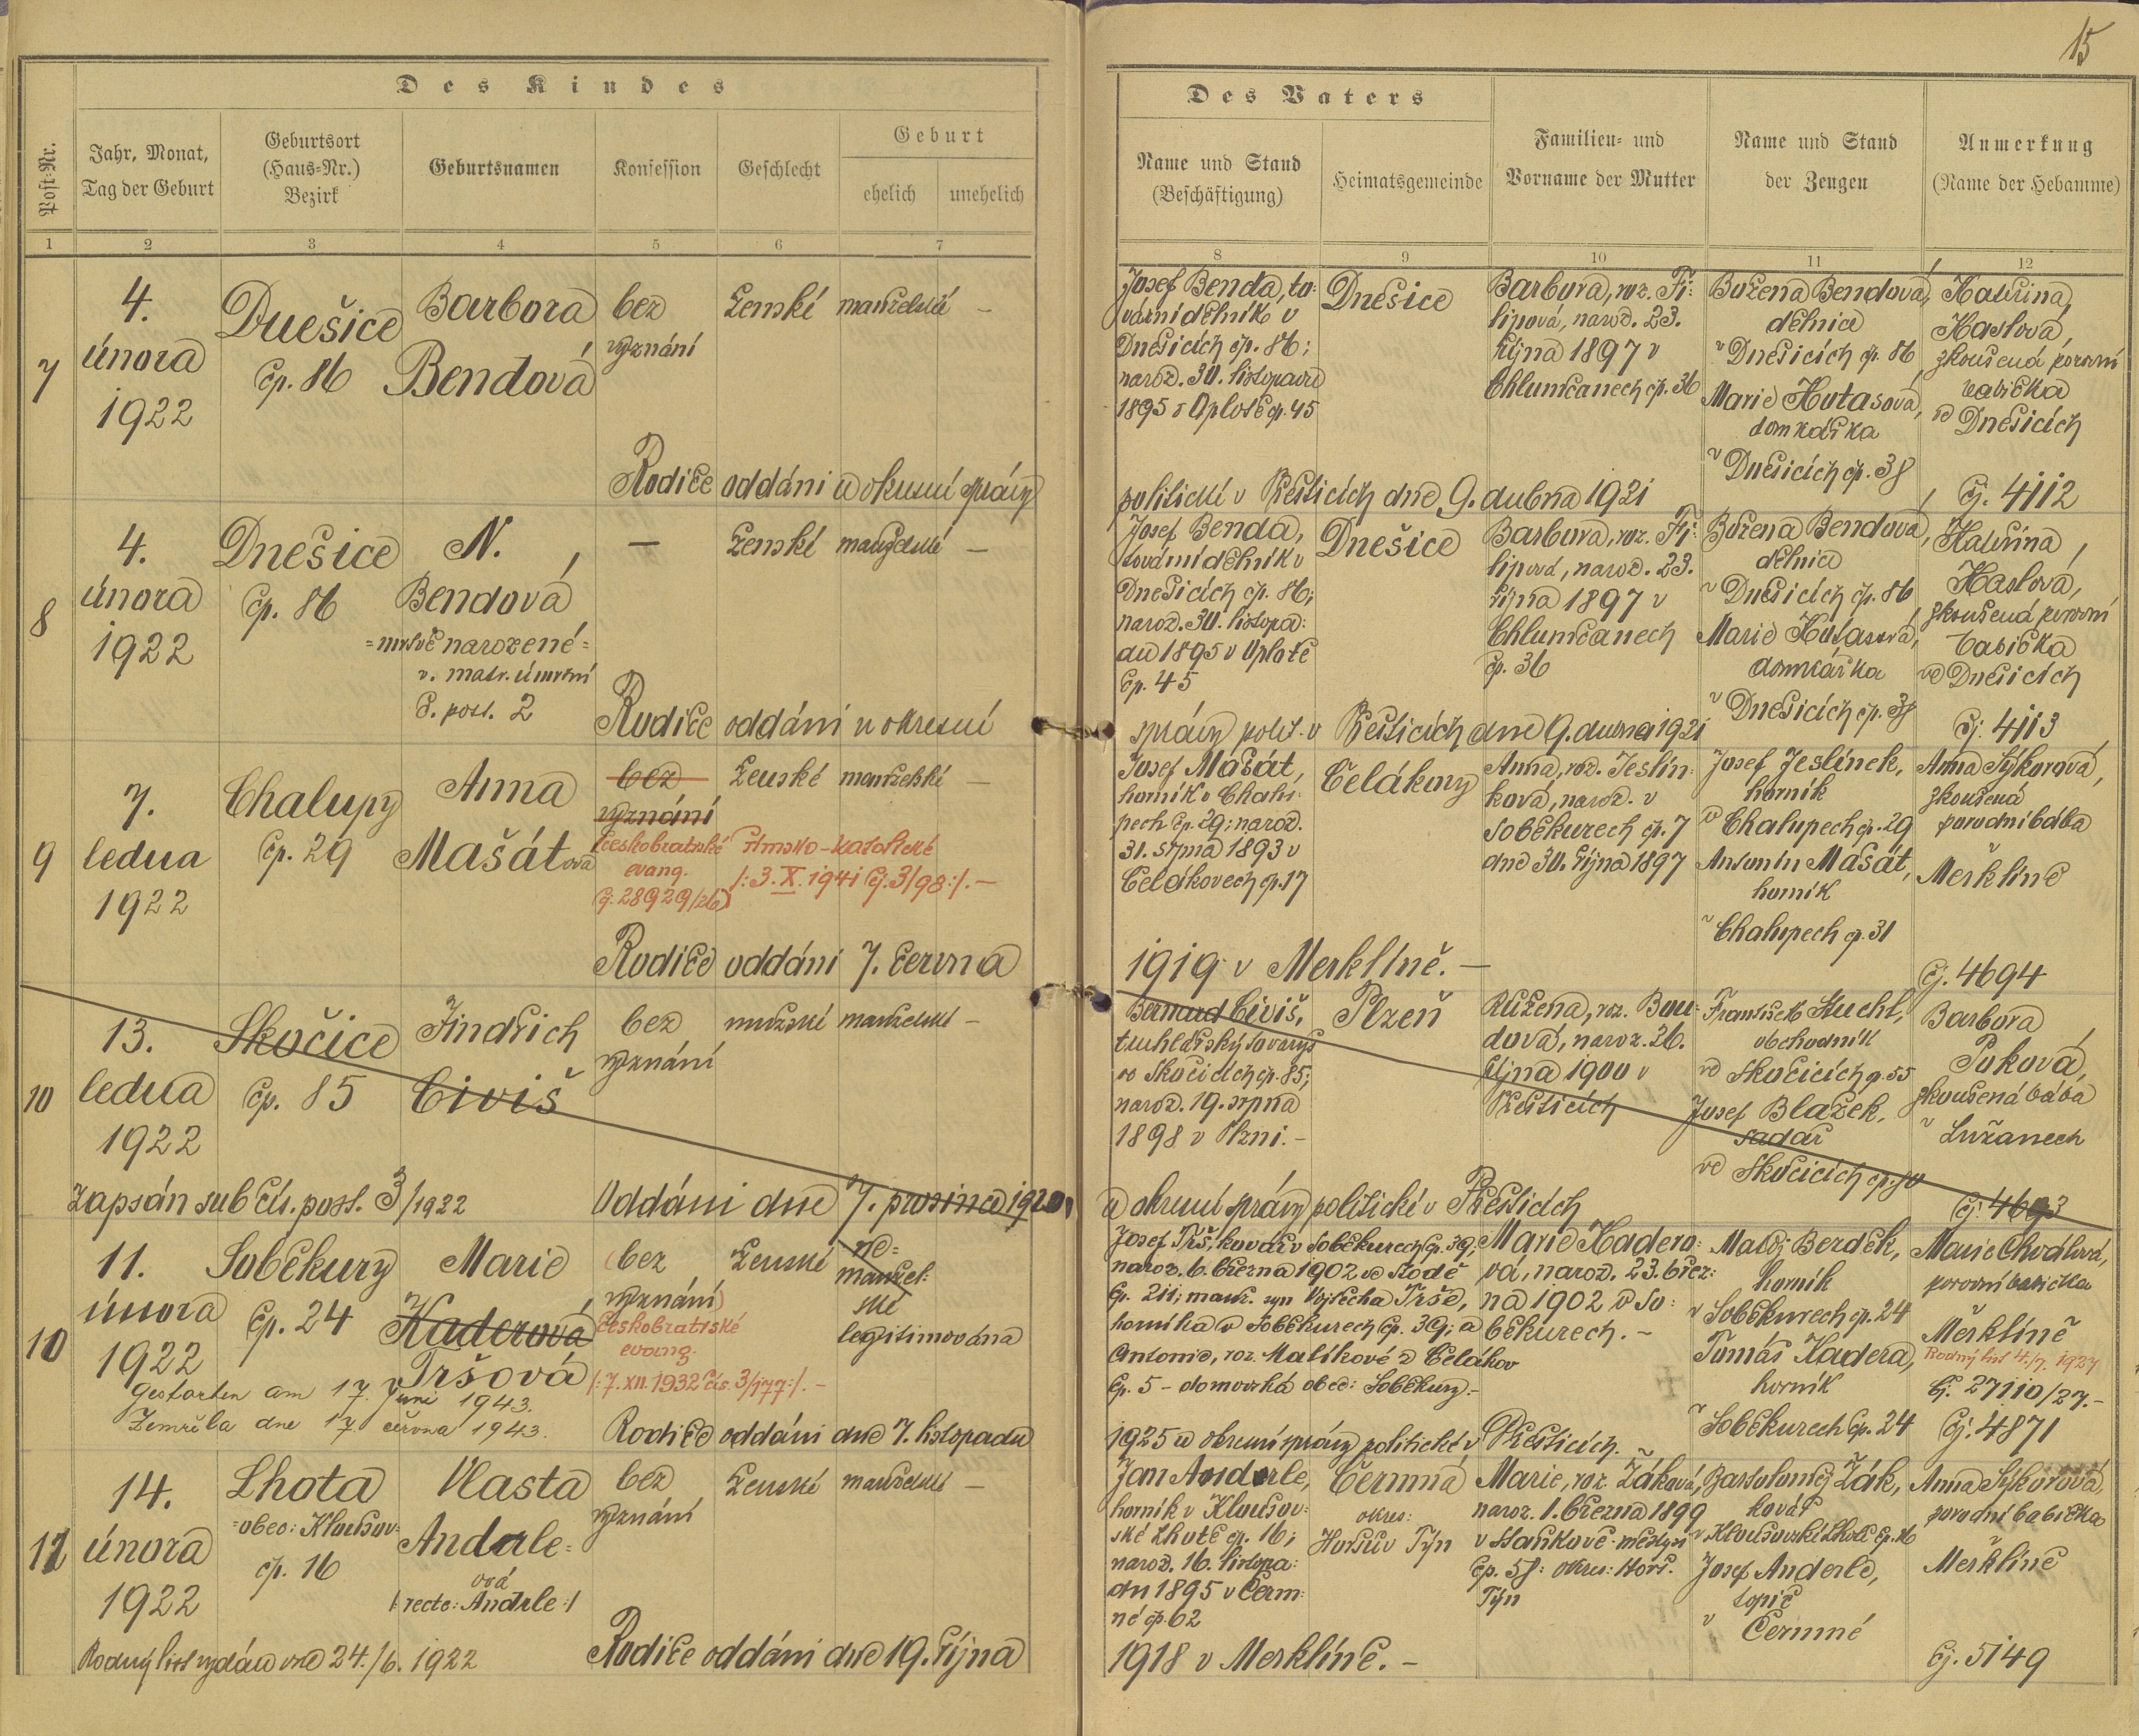 15
Des Kindes
Post-Nr.
Jahr, Monat,
Tag der Geburt
Geburtsort
(Haus-Nr.)
Bezirk
Geburtsnamen
Konfession
Geschlecht
Geburt
ehelich
unehelich
Des Vaters
Name und Stand
(Beschäftigung)
Heimatsgemeinde
Familien- und
Vorname der Mutter
Name und Stand
der Zeugen
Anmerkung
(Name der Hebamme)
1 2 3 4 5 6 7
8 9 10 11 12
7
4.
února
1922
Dnešice
čp. 86
Barbora
Bendová
bez
vyznání
ženské
manželské
—
Josef Benda, to-
vární dělník v
Dnešicích čp. 86;
naroz. 30. listopadu
1895 v Oplotě čp. 45
Dnešice
Barbora, roz. Fi-
lipová, naroz. 23.
října 1897 v
Chlumčanech čp. 36
Božena Bendová,
dělnice
v Dnešicích čp. 86
Marie Hutasová,
domkářka
v Dnešicích čp. 38
Kateřina
Haslová,
zkoušená porodní
babička
ve Dnešicích
Čj. 4112
Rodiče oddáni u okresní správy
politické v Přešticích dne 9. dubna 1921
8
4.
února
1922
Dnešice
čp. 86
N.
Bendová
=mrtvě narozené=
v. matr. úmrtní
č. post. 2
—
ženské
manželské
—
Josef Benda,
tovární dělník v
Dnešicích čp. 86;
naroz. 30. listopa-
du 1895 v Oplotě
čp. 45
Dnešice
Barbora, roz. Fi-
lipová, naroz. 23.
října 1897 v
Chlumčanech
čp. 36
Božena Bendová,
dělnice
v Dnešicích čp. 86
Marie Hutasová,
domkářka
v Dnešicích čp. 38
Kateřina
Haslová,
zkoušená porodní
babička
ve Dnešicích
Čj. 4113
Rodiče oddáni u okresní
správy polit. v Přešticích dne 9. dubna 1921
9
7.
ledna
1922
Chalupy
čp. 29
Anna
Mašátová
bez
vyznání
českobratrské
evang.
(čj. 28929/26)
římsko-katolické
/:3. X. 1941 čj. 3/98:/. —
ženské
manželské
—
Josef Mašát,
horník v Chalu-
pech čp. 29; naroz.
31. srpna 1893 v
Čelákovech čp. 17
Čelákovy
Anna, roz. Jeslín-
ková, naroz. v
Soběkurech čp. 7
dne 30. října 1897
Josef Jeslínek,
horník
v Chalupech čp. 29
Antonín Mašát,
horník
v Chalupech čp. 31
Anna Sýkorová,
zkoušená
porodní bába
Merklíně
Čj. 4694
Rodiče oddáni 7. června
1919 v Merklíně. —
10
13.
ledna
1922
Skočice
čp. 85
Jindřich
Civiš
bez
vyznání
mužské
manželské
—
Bernard Civiš,
truhlářský tovaryš
ve Skočicích čp. 85;
naroz. 19. srpna
1898 v Plzni. —
Plzeň
Růžena, roz. Bou-
dová, naroz. 26.
října 1900 v
Přešticích
František Stuchl,
obchodník
ve Skočicích čp. 55
Josef Blažek,
sadař
ve Skočicích
Barbora
Puková,
zkoušená bába
v Lužanech
Čj. 4693
Zapsán sub čís. post. 3/1922
Oddáni dne 7. prosince 1920
u okresní správy politické v Přešticích
10
11.
února
1922
Soběkury
čp. 24
Marie
Kaderová
Tršová
(bez
vyznání)
českobratrské
evang.
/:7. XII. 1932 čís. 3/177:/. —
ženské
ne-
manžel-
ské
legitimována
Josef Trš, kovář v Soběkurech čp. 39;
naroz. 6. března 1902 ve Stodě
čp. 211; manž. syn Vojtěcha Trše,
horníka v Soběkurech čp. 39; a
Antonie, roz. Malíkové z Čelákov
čp. 5 - domovská obec: Soběkury. —
Marie Kadero-
vá, naroz. 23. břez-
na 1902 v So-
běkurech. —
Matěj Berdek,
horník
v Soběkurech čp. 24
Tomáš Kadera,
horník
v Soběkurech čp. 24
Marie Chválová,
porodní babička
Merklíně
Rodný list 4./7. 1927
Čj. 27110/27. —
Čj. 4871
Gestorben am 17. Juni 1943.
Zemřela dne 17. června 1943.
Rodiče oddáni dne 7. listopadu
1925 u okresní správy politické v Přešticích.
11
14.
února
1922
Lhota
=obec: Kloušov=
čp. 16
Vlasta
Anderle-
ová
/:recte: Andrle:/
bez
vyznání
ženské
manželské
—
Jan Anderle,
horník v Kloušov-
ské Lhotě čp. 16;
naroz. 16. listopa-
du 1895 v Čerm-
né čp. 62
Čermná
okres:
Horšův Týn
Marie, roz. Žáková,
naroz. 1. března 1899
v Staňkově-městys
čp. 58: okres: Horš.
Týn
Bartoloměj Žák,
kovář
v Kloušovské Lhotě čp. 16
Josef Anderle,
topič
v Čermné
Anna Sýkorová,
porodní babička
Merklíně
Čj. 5149
Rodný list vydán dne 24./6. 1922
Rodiče oddáni dne 19. října
1918 v Merklíně. —